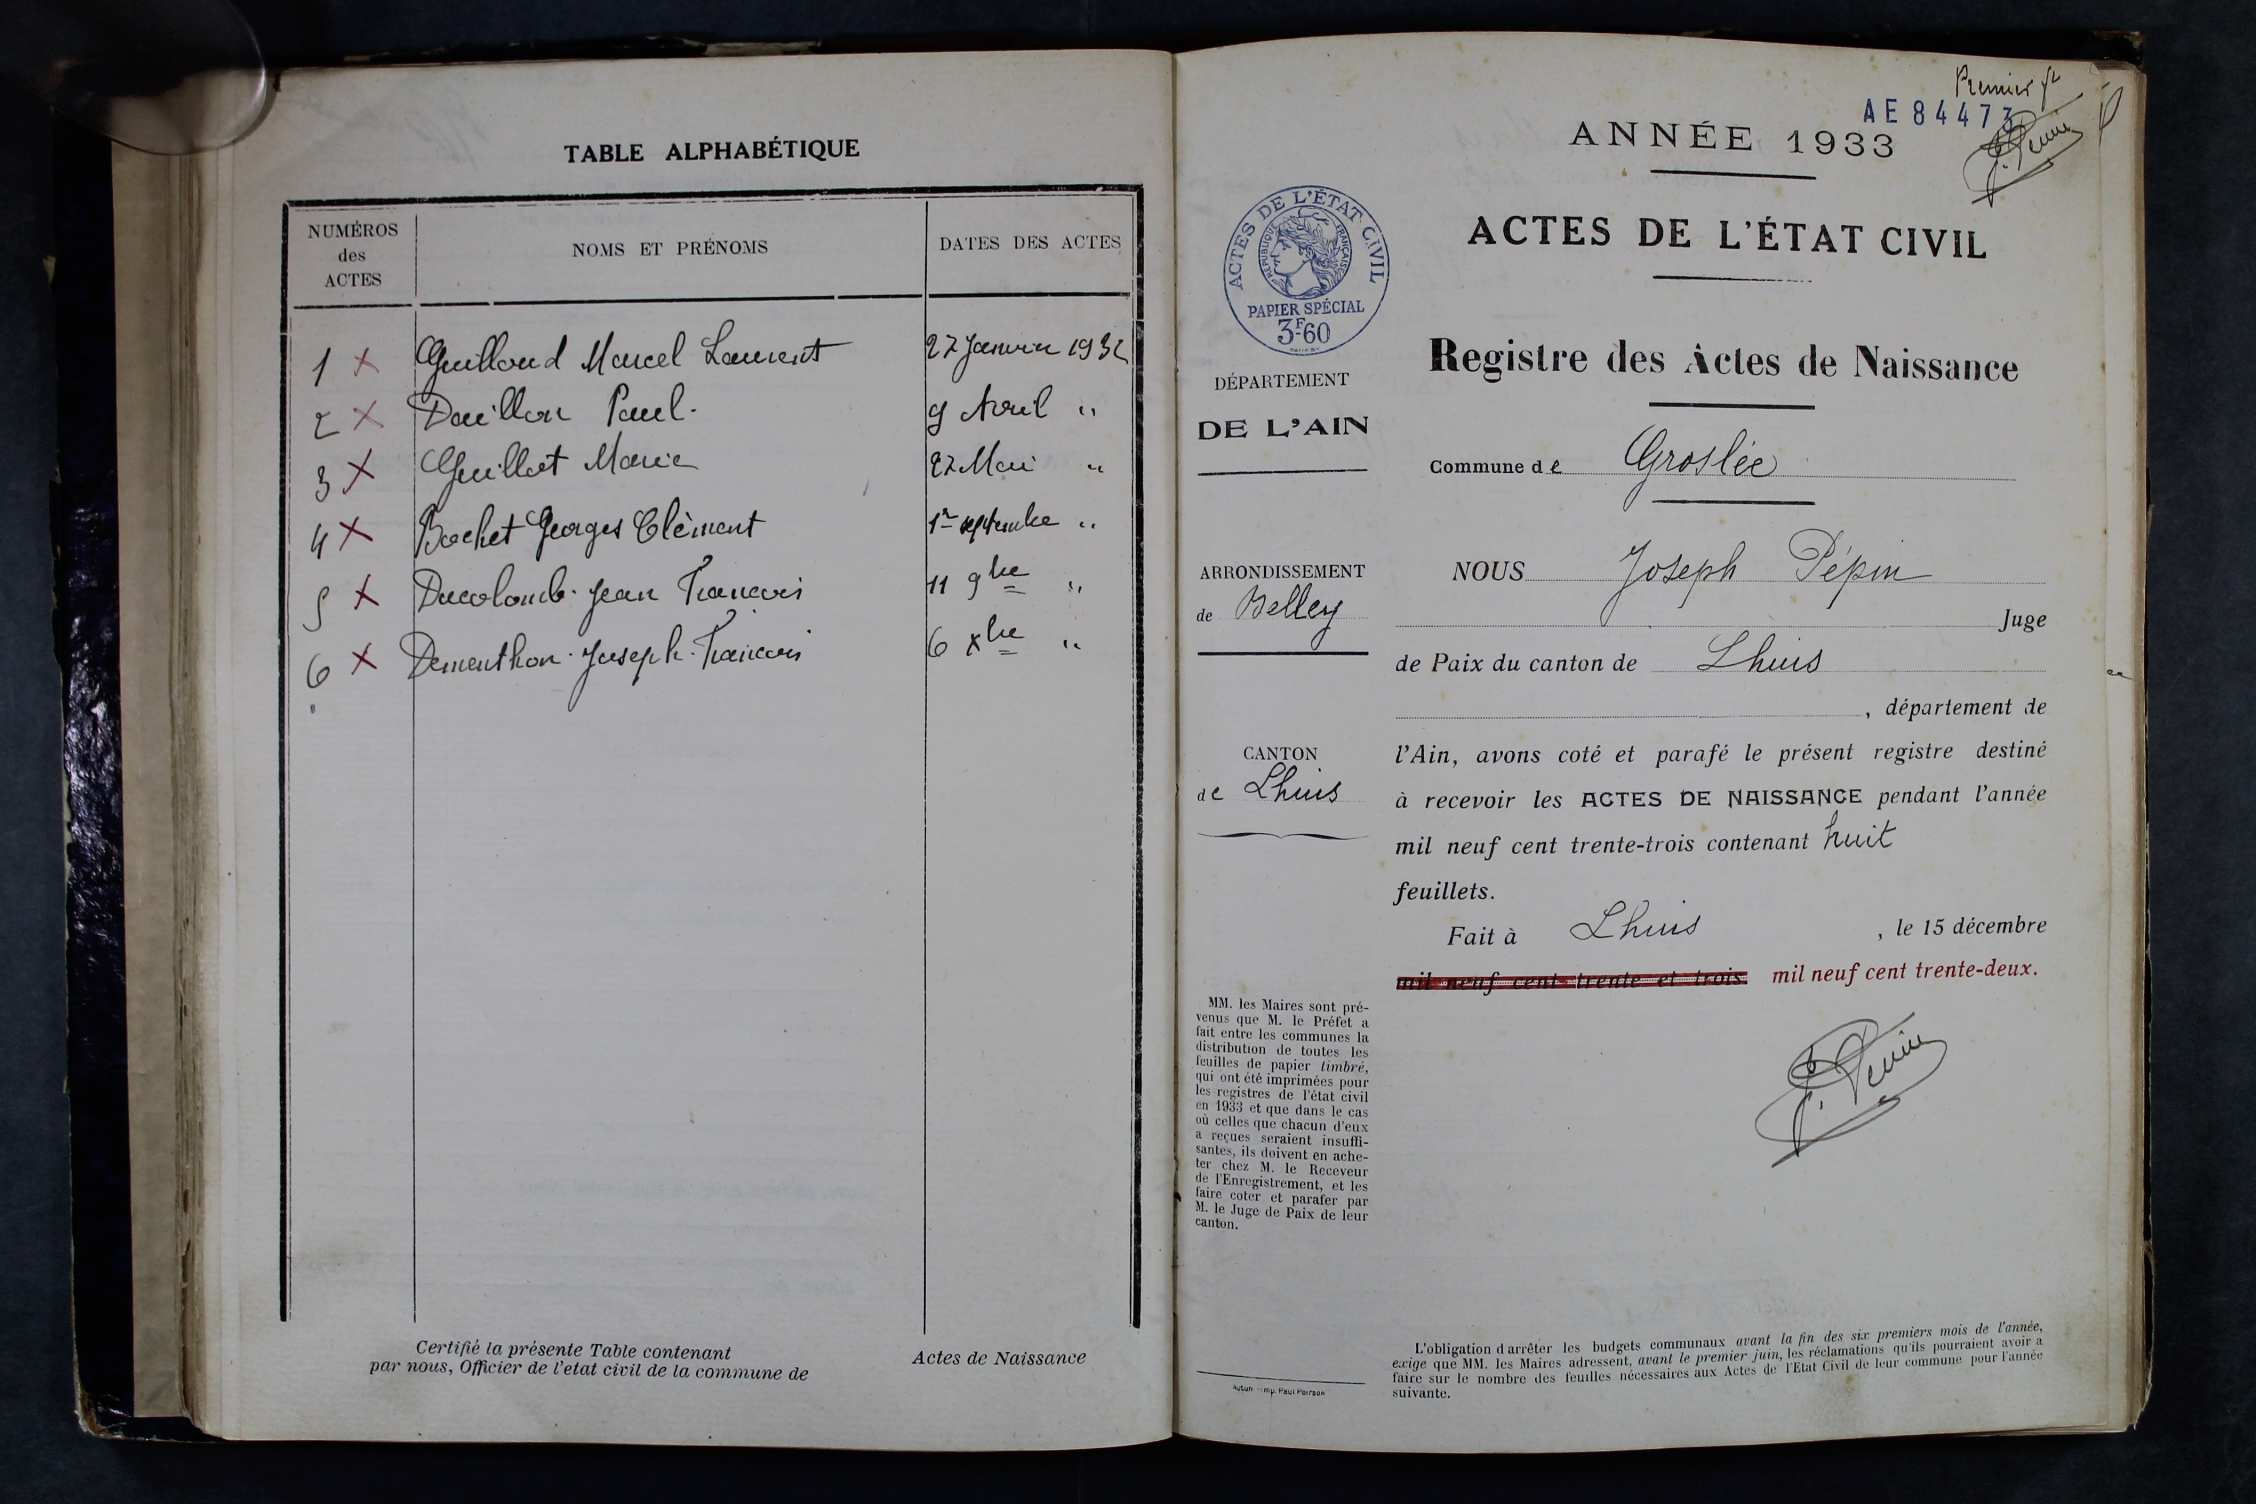 TABLE ALPHABÉTIQUE
NUMÉROS
des
ACTES
NOMS ET PRÉNOMS
DATES DES ACTES
1 x Guilloud Marcel Laurent 27 Janvier 1932
2 x Douillon Paul. 9 Avril "
3 x Guillot Marie 27 Mai "
4 x Bochet Georges Clèment 1er septembre "
5 x Ducolomb. Jean Francois 11 9bre "
6 x Dementhon. Joseph. Francois 6 xbre "
Certifié la présente Table contenant Actes de Naissance
par nous, Officier de l'etat civil de la commune de
Premier ft
AE 84473
J. Pépin
ANNÉE 1933
ACTES DE L'ÉTAT CIVIL
ACTES DE L'ÉTAT CIVIL
RÉPUBLIQUE FRANÇAISE
PAPIER SPÉCIAL
3F60
Registre des Actes de Naissance
DÉPARTEMENT
DE L'AIN
Commune de Groslée
ARRONDISSEMENT
de Belley
CANTON
de Lhuis
NOUS Joseph Pépin
Juge
de Paix du canton de Lhuis
, département de
l'Ain, avons coté et parafé le présent registre destiné
à recevoir les ACTES DE NAISSANCE pendant l'année
mil neuf cent trente-trois contenant huit
feuillets.
Fait à Lhuis, le 15 décembre
mil neuf cent trente et trois mil neuf cent trente-deux.
J. Pépin
MM. les Maires sont pré-
venus que M. le Préfet a
fait entre les communes la
distribution de toutes les
feuilles de papier timbré,
qui ont été imprimées pour
les registres de l'état civil
en 1933 et que dans le cas
où celles que chacun d'eux
a reçues seraient insuffi-
santes, ils doivent en ache-
ter chez M. le Receveur
de l'Enregistrement, et les
faire coter et parafer par
M. le Juge de Paix de leur
canton.
Autun - Imp. Paul Poirson
L'obligation d'arrêter les budgets communaux avant la fin des six premiers mois de l'année,
exige que MM. les Maires adressent, avant le premier juin, les réclamations qu'ils pourraient avoir a
faire sur le nombre des feuilles nécessaires aux Actes de l'Etat Civil de leur commune pour l'année
suivante.